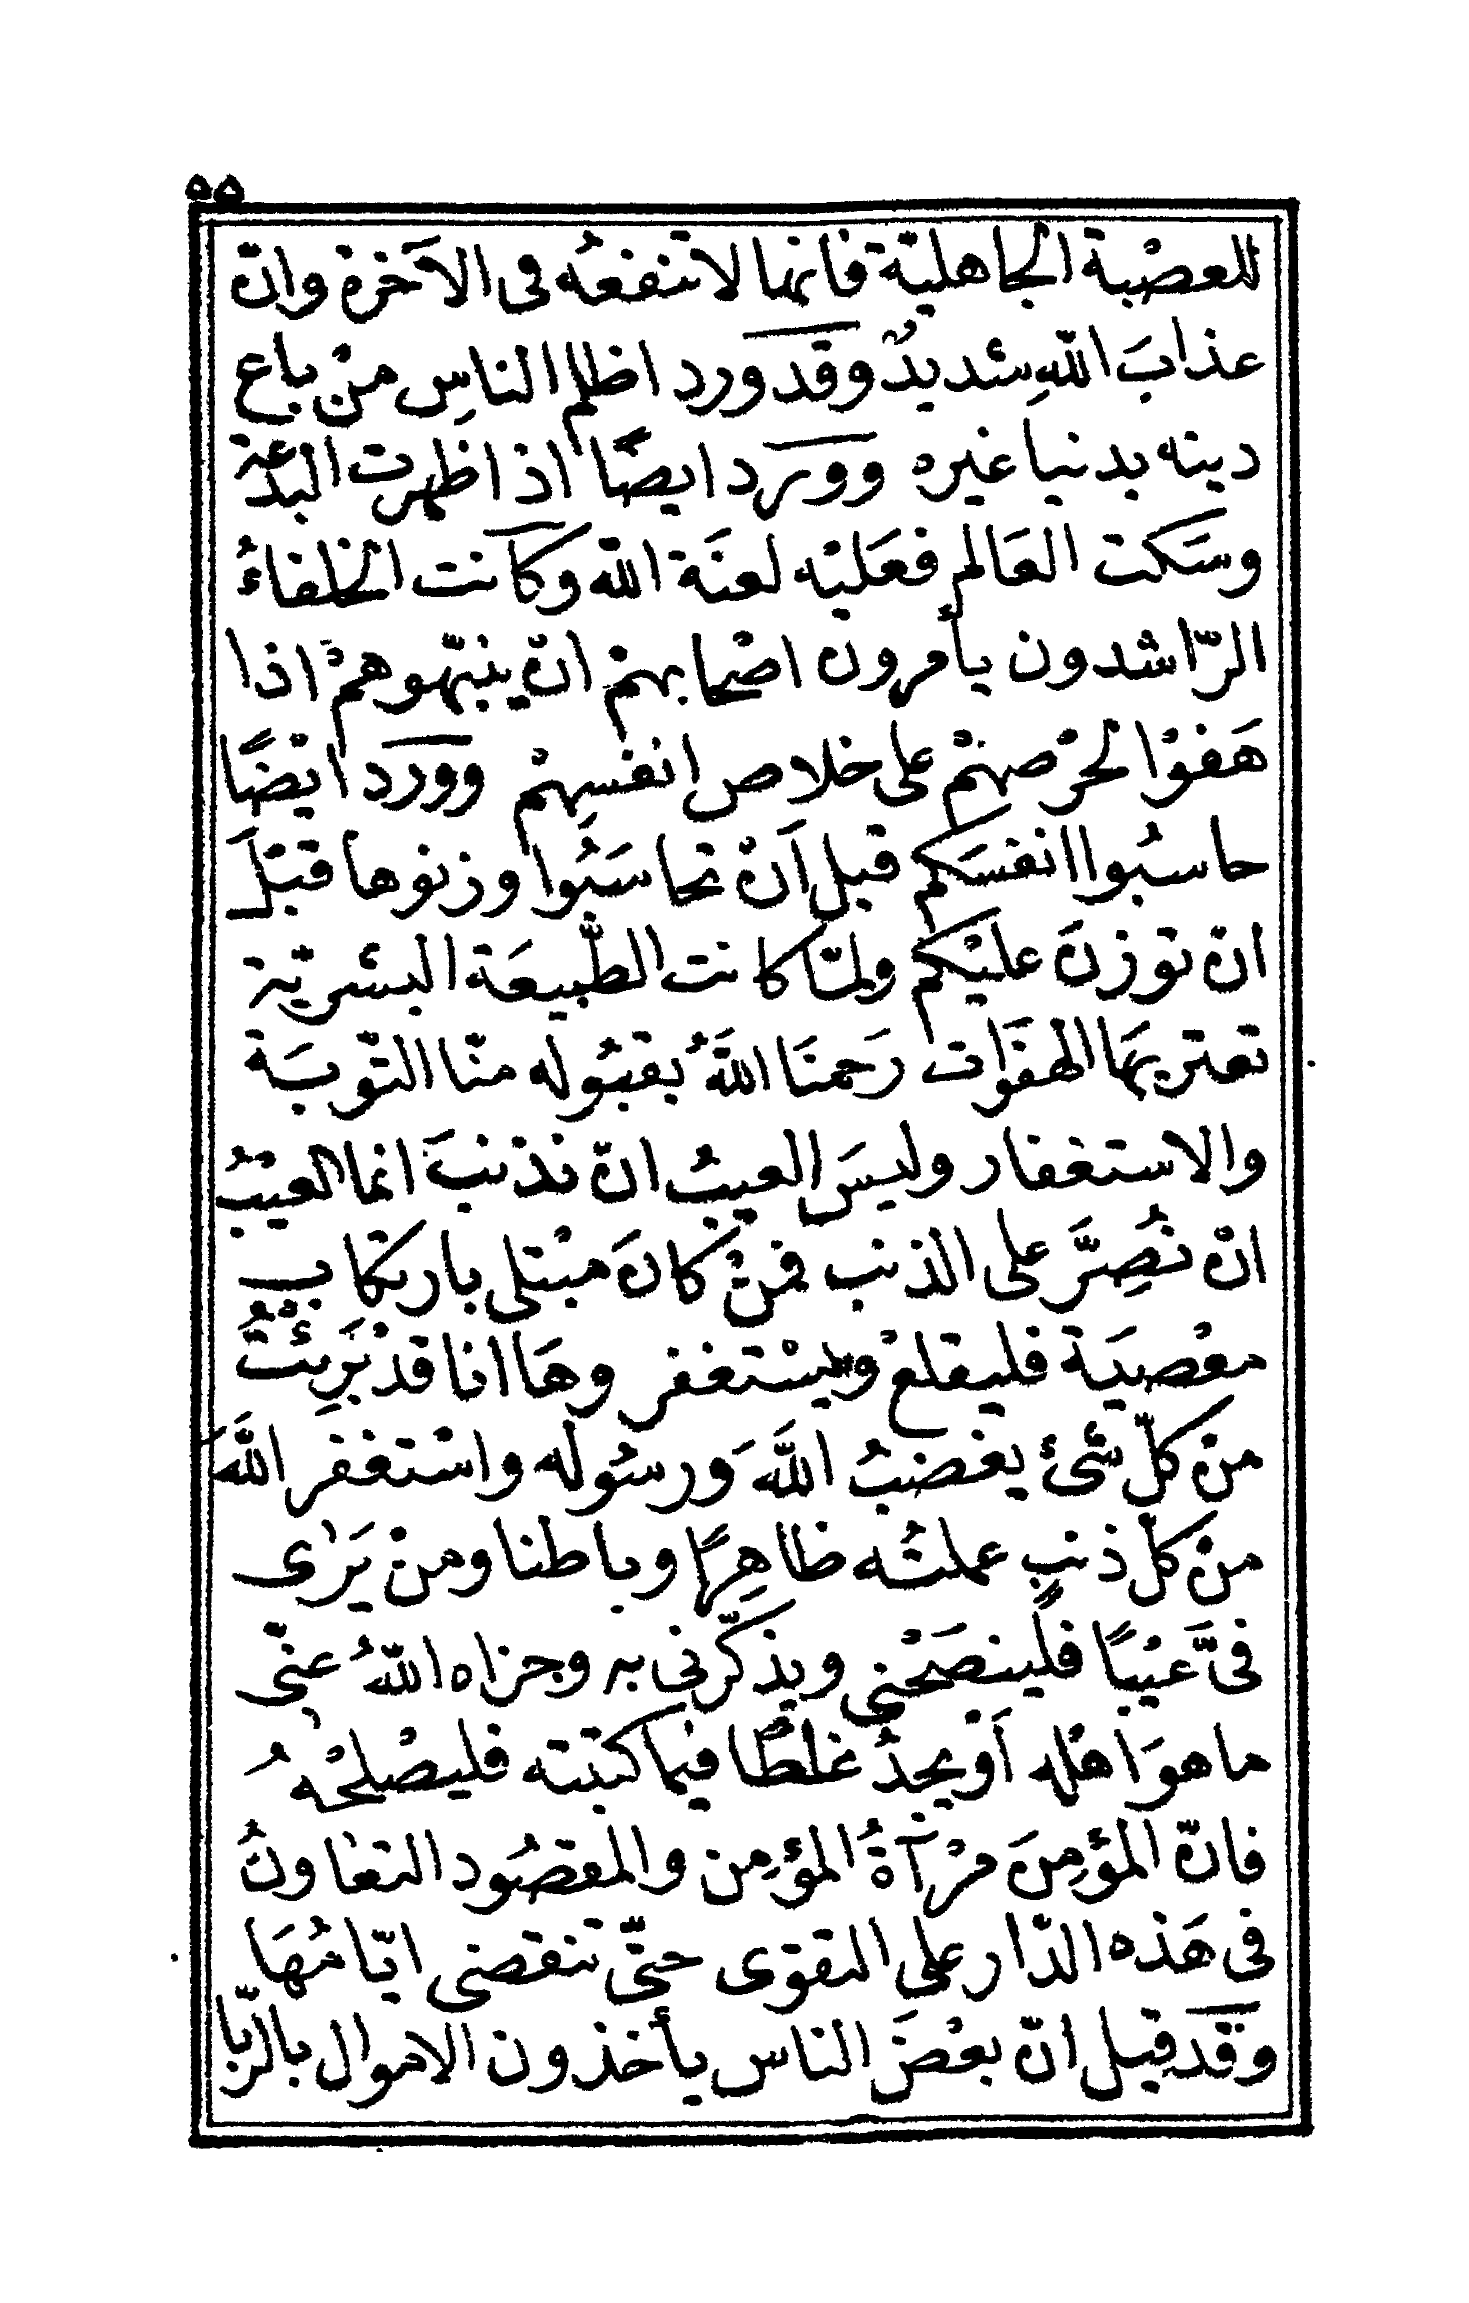 ٥٥
للعصْبة الجاهليّة فانها لا تنفعُه فى الآخرة وانّ
عذابَ اللّهِ شديدٌ وقد ورد اظلم الناسِ منْ باع
دينه بدنيا غيره وورَد ايضًا اذا ظهرت البدعة
وسَكت العَالم فعَليْه لعنَة اللّه وكانت الخلفاءُ
الرّاشدون يأمرون اصْحابهمْ انّ ينبّهوهمْ اذا
هَفوْا لحرْصهمْ على خلاص انفسِهمْ وورد ايْضًا
حاسبُوا انفسَكم قبل أنْ تحاسَبُوا وزنوها قبْلَ
انْ توزنَ عليْكم ولمّا كانت الطّبيعَة البشريّة
تعتريهَا الهفَوات رَحمنَا اللّهُ بقبُوله منّا التّوبَة
والاستغفار وليسَ العيبُ انْ تذنبَ انما العيْبُ
انْ نُصِرَّ على الذنب فمنْ كانَ مبْتلى بارتكاب
معْصيَة فليقلعْ وليسْتغفر وهَا انا قدْ بَرِئْتُ
منْ كلّ شئ يغضبُ اللّهَ ورسُوله واسْتغفر اللّهَ
منْ كلّ ذنبٍ عملتُه ظاهِرًا وباطنا ومنْ يَرٰى
فىَّ عَيْبًا فلينصَحْنى ويذكّرنى به وجزاه اللّهُ عنّى
ما هوَ اهْله أوْ يجدُ غلطًا فيما كتبته فليصْلحْهُ
فانّ المؤمِنَ مرْآةُ المؤمِن والمقصُود التعاونُ
فى هَذه الدّار على التقوى حتّى تنقضى ايّامُهَا
وقد قيل انّ بعْضَ الناس يأخذون الاموال بالرّبا